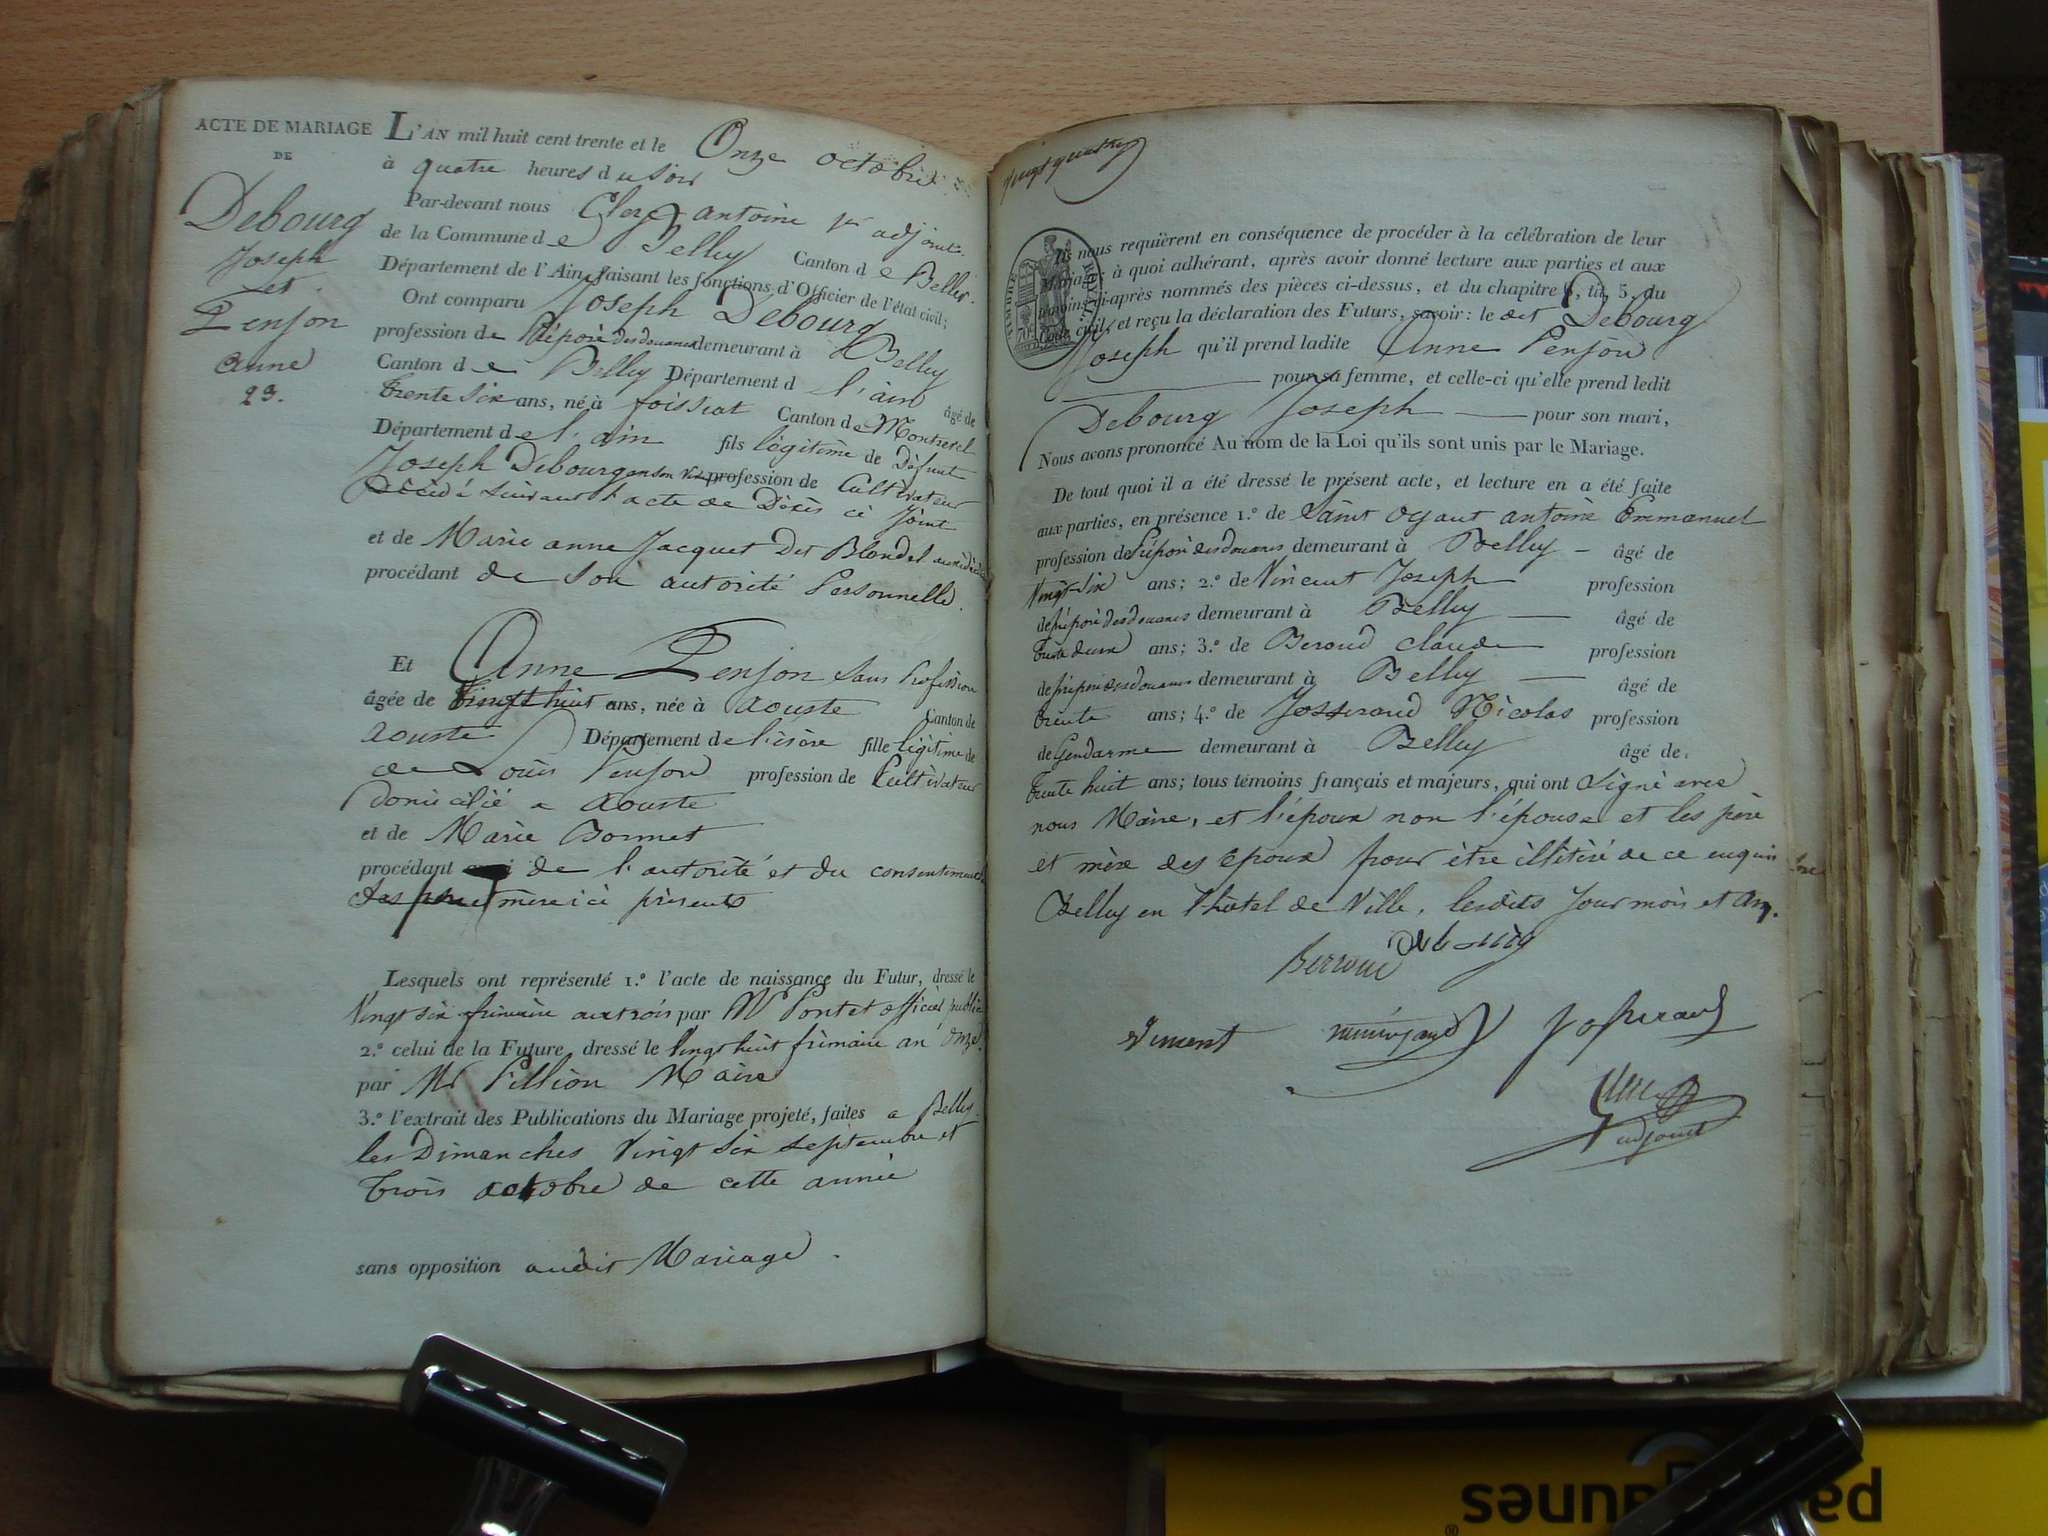 ACTE DE MARIAGE
DE
Debourg
Joseph
et
Penjon
anne
23.
L'AN mil huit cent trente et le Onze octobre
à quatre heures du soir
Par-devant nous Clerc antoine 1er adjoint
de la Commune de Belley Canton de Belley
Département de l'Ain, faisant les fonctions d'Officier de l'état civil;
Ont comparu Joseph Debourg
profession de Préposé des douanes demeurant à Belley
Canton de Belley Département d l'ain âgé de
trente six ans, né à foissiat Canton de Montrevel
Département de l'ain fils légitime de Défunt
Joseph Debourg en son vivant profession de Cultivateur
Décédé suivant l'acte de Décès ci Joint
et de Marie anne Jacquet Det Blondel
procédant de son autorité Personnelle.
Et Anne Penjon sans Profession
âgée de Vingt huit ans, née à aouste Canton de
aouste Département de l'isère fille légitime de
de Louis Penjon profession de Cultivateur
domicilié a aouste
et de Marie Bonnet
procédant de l'autorité et du consentement
des père mère ici présents
Lesquels ont représenté 1.º l'acte de naissance du Futur, dressé le
Vingt six frimaire an trois par Mr Pontet officier public
2.º celui de la Future, dressé le Vingt huit frimaire an onze
par Mr Pillion Maire
3.º l'extrait des Publications du Mariage projeté, faites a Belley
les Dimanches Vingt six septembre et
trois octobre de cette année
sans opposition audit Mariage.
Vingt quatre
TIMBRE ROYAL
Ils nous requièrent en conséquence de procéder à la célébration de leur
Mariage à quoi adhérant, après avoir donné lecture aux parties et aux
témoins ci-après nommés des pièces ci-dessus, et du chapitre 6, tit. 5, du
Code civil, et reçu la déclaration des Futurs, savoir: le dit Debourg
Joseph qu'il prend ladite Anne Penjon
pour sa femme, et celle-ci qu'elle prend ledit
Debourg Joseph pour son mari,
Nous avons prononcé Au nom de la Loi qu'ils sont unis par le Mariage.
De tout quoi il a été dressé le présent acte, et lecture en a été faite
aux parties, en présence 1.º de Saint oyant antoine Emmanuel
profession de Préposé des douanes demeurant à Belley âgé de
Vingt-six ans; 2.º de Vincent Joseph profession
de préposé des douanes demeurant à Belley âgé de
trente deux ans; 3.º de Beroud claude profession
de préposé des douanes demeurant à Belley âgé de
trente ans; 4.º de Josserand Nicolas profession
de Gendarme demeurant à Belley âgé de
trente huit ans; tous témoins français et majeurs, qui ont signé avec
nous Maire, et l'époux non l'épouse et les père
et mère des Epoux pour être illitéré de ce enquis
Belley en l'hotel de Ville, lesdits Jour mois et an.
Berroud debourg
vincent Josserand
Clerc
adjoint